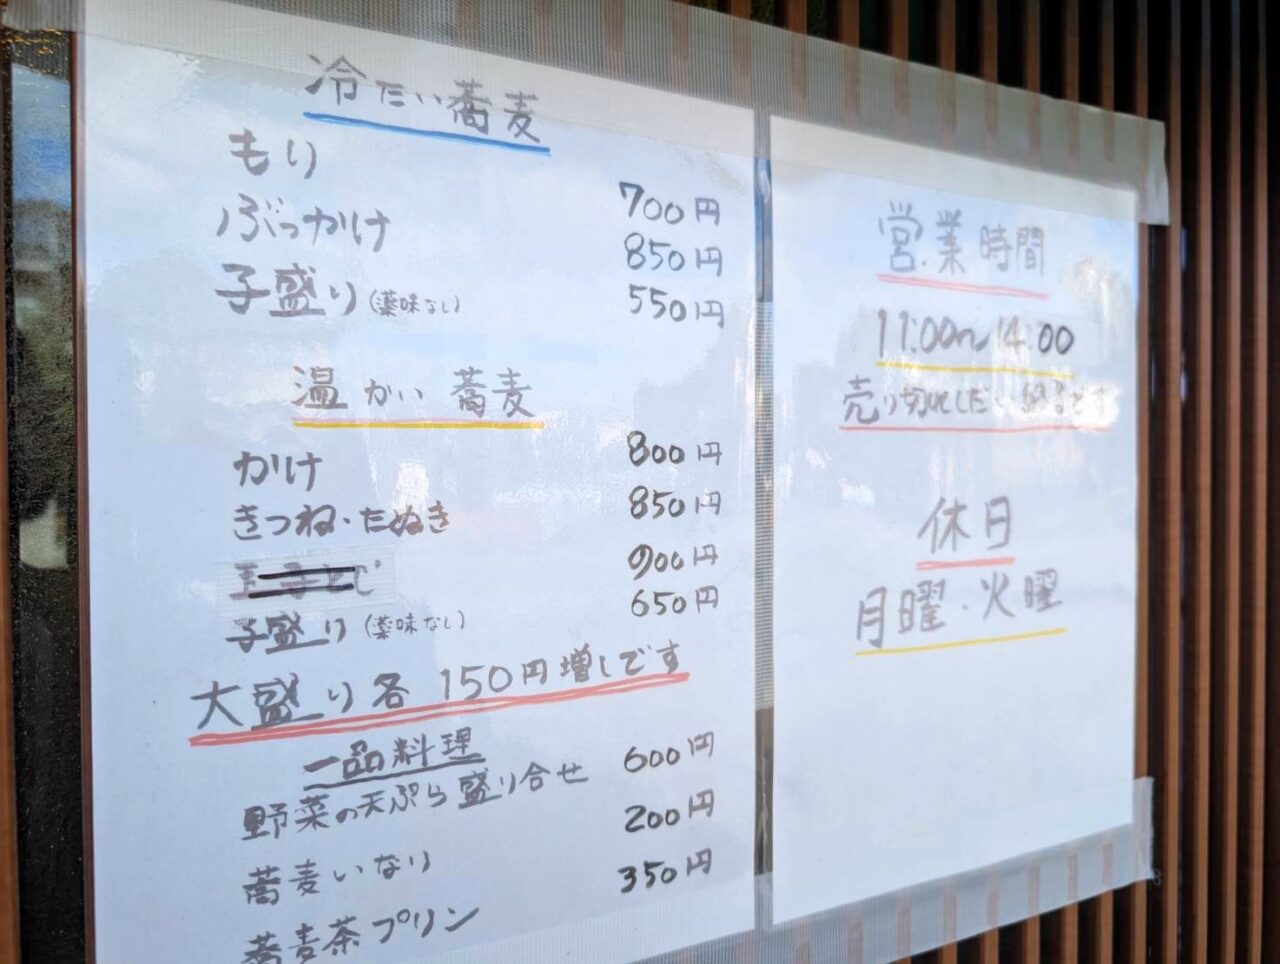 冷たい蕎麦
もり 700円
ぶっかけ 850円
子盛り(薬味なし) 550円
温かい蕎麦
かけ 800円
きつね・たぬき 850円
玉子とじ 900円
子盛り(薬味なし) 650円
大盛り各 150円増しです
一品料理
野菜の天ぷら盛り合せ 600円
蕎麦いなり 200円
蕎麦茶プリン 350円
営業時間
11:00〜14:00
売り切れしだい終了です
休日
月曜・火曜